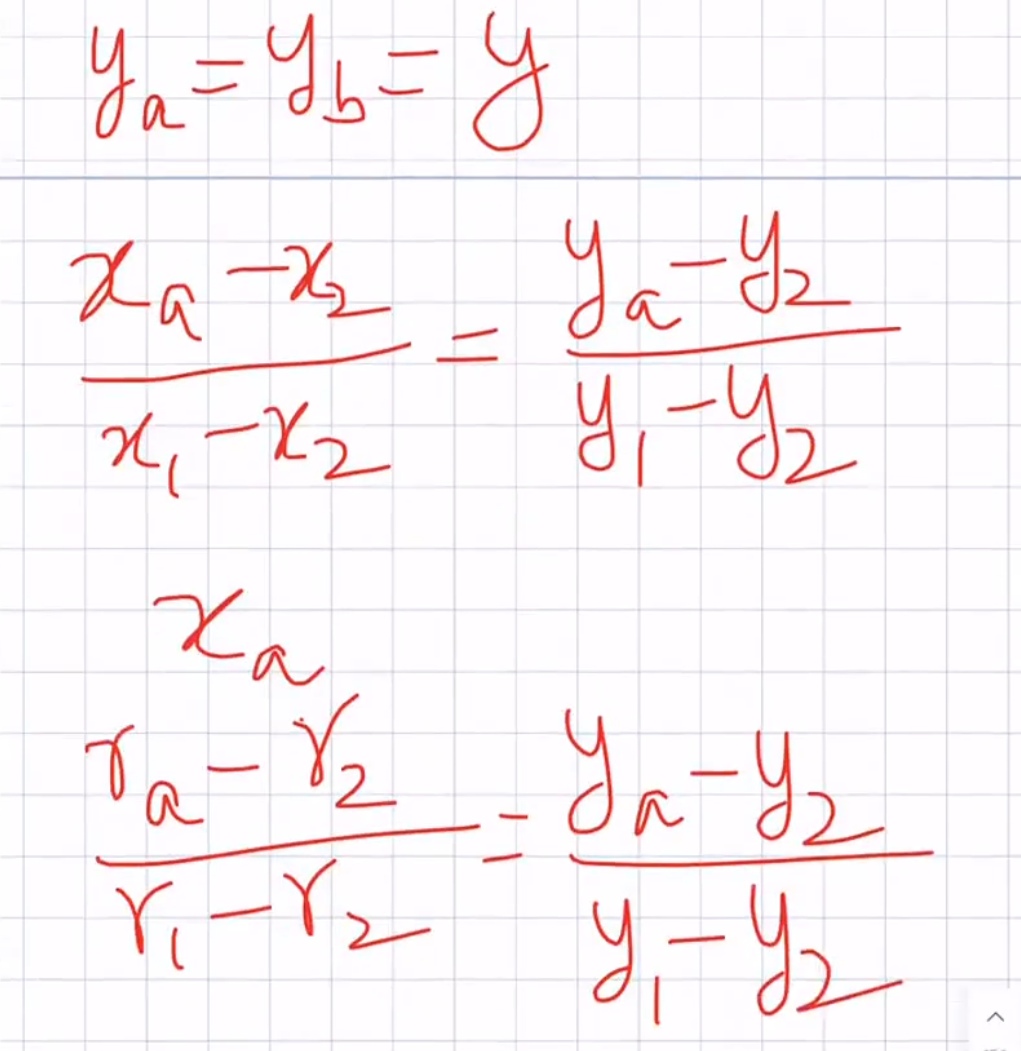 yₐ = y_b = y
(xₐ - x₂)/(x₁ - x₂) = (yₐ - y₂)/(y₁ - y₂)
xₐ
(rₐ - r₂)/(r₁ - r₂) = (yₐ - y₂)/(y₁ - y₂)